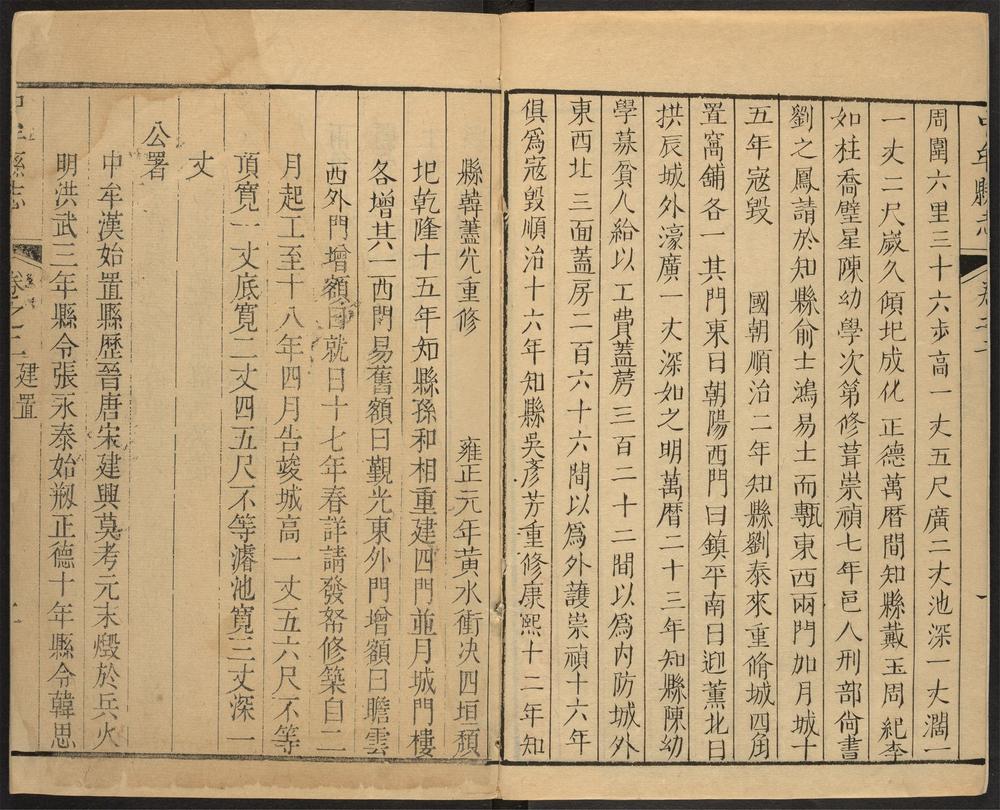 中牟縣志 卷之二 一
周圍六里三十六步高一丈五尺廣二丈池深一丈濶一
一丈二尺歲久傾圯成化 正德萬曆間知縣戴玉周紀李
如桂喬璧星陳幼學次第修葺崇禎七年邑人刑部尙書
劉之鳳請於知縣俞士鴻易土而甎東西兩門加月城十
五年寇毀 國朝順治二年知縣劉泰來重脩城四角
置窩鋪各一 其門東曰朝陽西門曰鎮平南曰迎薰北曰
拱辰城外濠廣一丈深如之明萬曆二十三年知縣陳幼
學募貧人給以工費蓋蓆三百二十二間以爲內防城外
東西北三面蓋房二百六十六間以爲外護崇禎十六年
俱爲寇毀順治十六年知縣吳彥芳重修康熙十二年知
縣韓藎光重修 雍正元年黃水衝決四垣頹
圯乾隆十五年知縣孫和相重建四門並月城門樓
各增其一西門易舊額曰覲光東外門增額曰瞻雲
西外門增額曰就日十七年春詳請發帑修築自二
月起工至十八年四月告竣城高一丈五六尺不等
頂寬一丈底寬二丈四五尺不等濬池寬三丈深一
丈
公署
中牟漢始置縣歷晉唐宋建興莫考元末燬於兵火
明洪武三年縣令張永泰始剏正德十年縣令韓思
中牟縣志 卷之二 建置 一